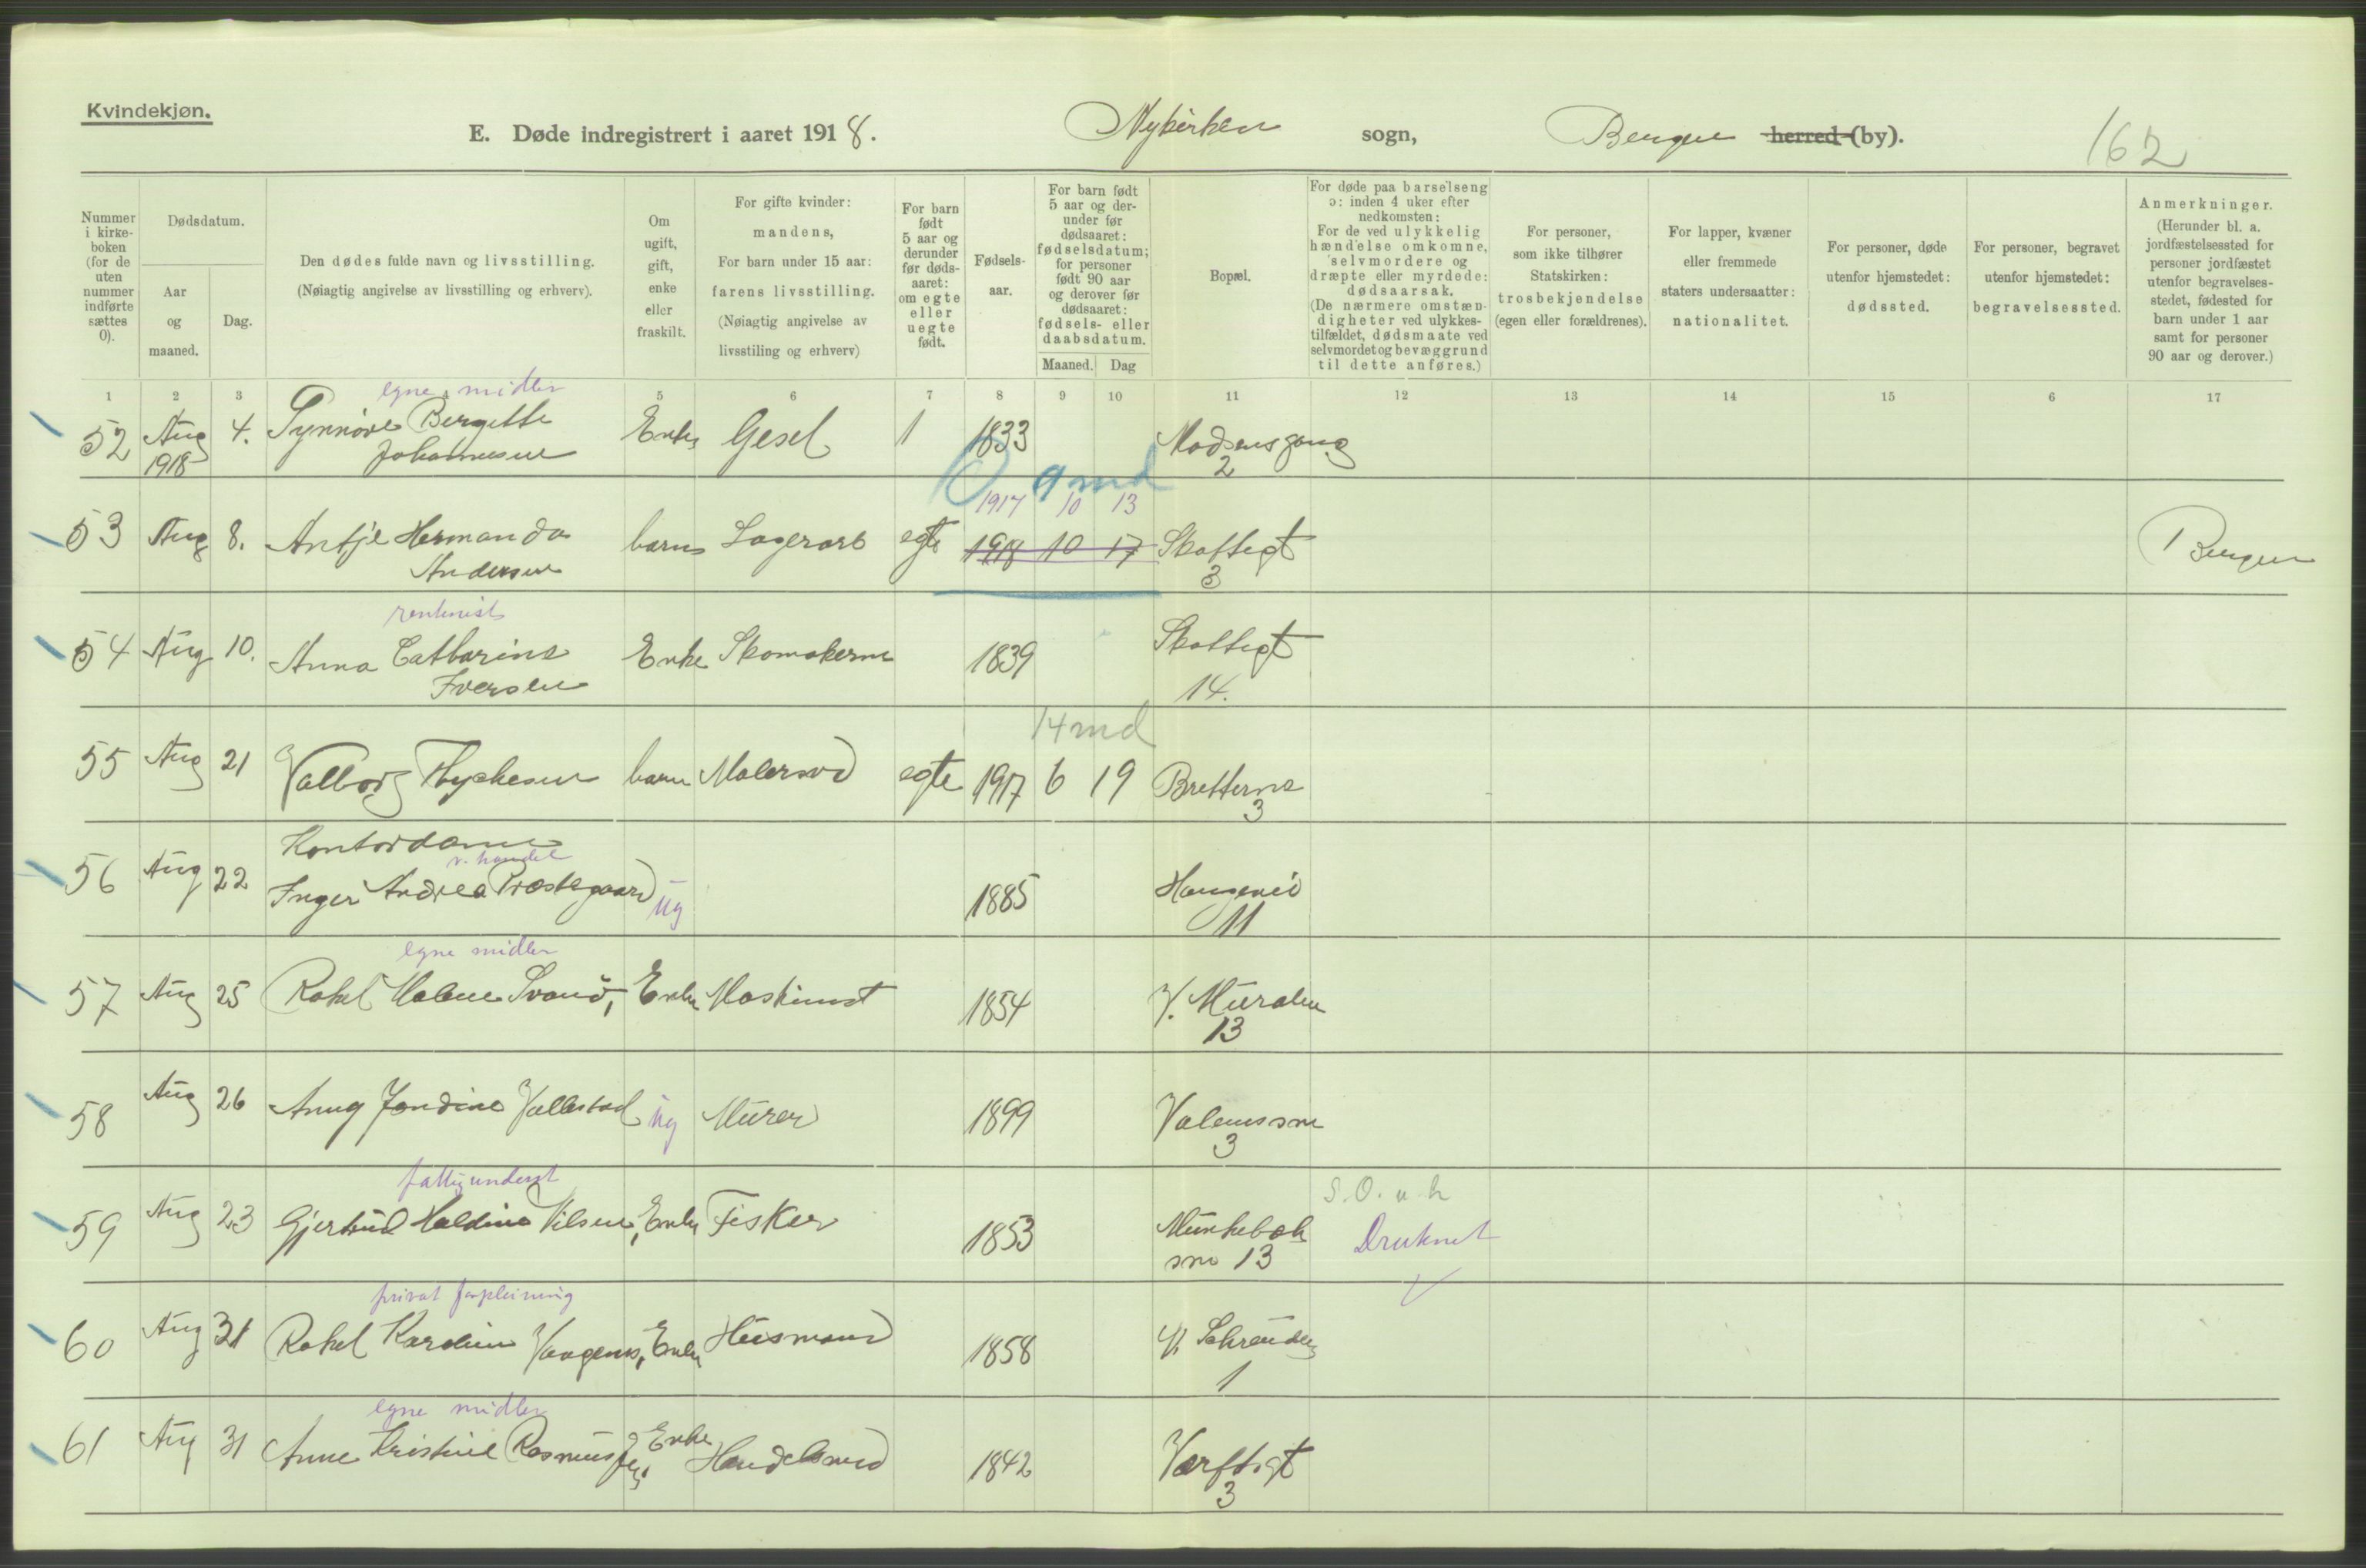 Kvindekjøn.
E. Døde indregistrert i aaret 1918. Nykirken sogn, Bergen herred (by). 162
Nummer i kirke-boken (for de uten nummer indførte sættes 0).
Dødsdatum.
Aar og maaned.
Dag.
Den dødes fulde navn og livsstilling.
(Nøiagtig angivelse av livsstilling og erhverv).
Om ugift, gift, enke eller fraskilt.
For gifte kvinder:
mandens,
For barn under 15 aar:
farens livsstilling.
(Nøiagtig angivelse av
livsstiling og erhverv)
For barn
født
5 aar og
derunder
før døds-
aaret:
om egte
eller
uegte
født.
Fødsels-
aar.
For barn født
5 aar og der-
under før
dødsaaret:
fødselsdatum;
for personer
født 90 aar
og derover før
dødsaaret:
fødsels- eller
daabsdatum.
Maaned. Dag
Bopæl.
For døde paa barselseng
ɔ: inden 4 uker efter
nedkomsten:
For de ved ulykkelig
hændelse omkomne,
selvmordere og
dræpte eller myrdede:
dødsaarsak.
(De nærmere omstæn-
digheter ved ulykkes-
tilfældet, dødsmaate ved
selvmordet og bevæggrund
til dette anføres.)
For personer,
som ikke tilhører
Statskirken:
trosbekjendelse
(egen eller forældrenes).
For lapper, kvæner
eller fremmede
staters undersaatter:
nationalitet.
For personer, døde
utenfor hjemstedet:
dødssted.
For personer, begravet
utenfor hjemstedet:
begravelsessted.
Anmerkninger.
(Herunder bl. a.
jordfæstelsessted for
personer jordfæstet
utenfor begravelses-
stedet, fødested for
barn under 1 aar
samt for personer
90 aar og derover.)
1 2 3 5 6 7 8 9 10 11 12 13 14 15 6 17
egne midler
52 Aug 4. Synnøve Bergitte Enke Gesel 1 1833 Madsensgang
1918 Johannesen 2
0 9 md
1917 10 13
53 Aug 8. Antje Hermanda barn Lagerarb egte 1918 10 17 Skottegt Bergen
Andersen 3
rentenist
54 Aug 10. Anna Catharina Enke Skomakerm 1839 Skottegt
Iversen 14.
14 md
55 Aug 21 Valborg Thyckesen barn Malersvd egte 1917 6 19 Bretterne
3
Kontordame
v. handel
56 Aug 22 Inger Andrea Prostegaard ug 1885 Haugevei
11
egne midler
57 Aug 25 Rakel Malene Svanø, Enke Maskinist 1854 V. Muralm
13
58 Aug 26 Anny Jondine Vallestad ug Murer 1899 Valemssm
3
fattigunderst S.O. u. h
59 Aug 23 Gjertrud Haldine Nilsen, Enke Fisker 1853 Munkebæk Druknet
sm 13
privat forpleining
60 Aug 31 Rakel Karoline Vaagenes, Enke Husmand 1858 V. Schreuder
1
egne midler
61 Aug 31 Anne Kristine Rasmussen, Enke Handelsmd 1842 Verftsgt
3